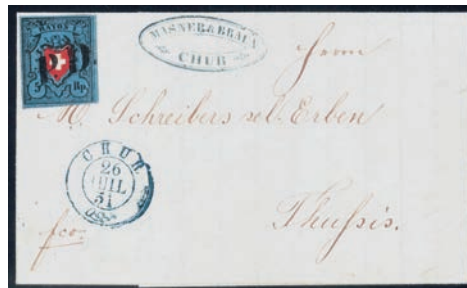 RAYON
PD
5 Rp.
MASNER & BRAUN
CHUR
Herrn
M. Schreibers sel. Erben
CHUR
26
JUIL
51
Thusis.
fco.